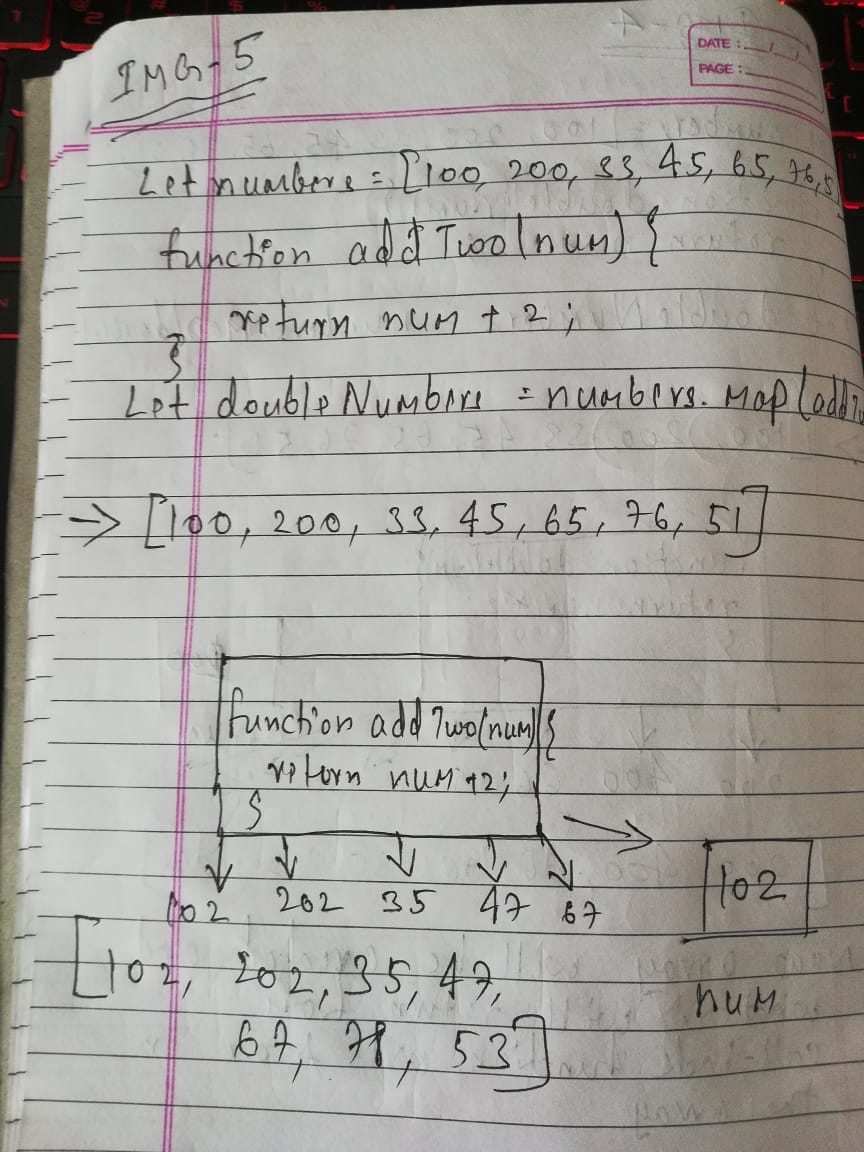 IMG-5
DATE :
PAGE :
Let numbers = [100, 200, 33, 45, 65, 76, 5
function addTwo(num) {
return num + 2;
}
Let doubleNumbers = numbers.map(addTw
⇒ [100, 200, 33, 45, 65, 76, 51]
function addTwo(num) {
return num +2;
}
102 202 35 47 67
102
num
[102, 202, 35, 47,
67, 78, 53]